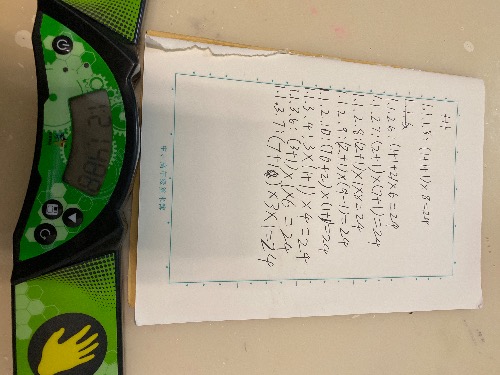 1.1.1.8: (1+1+1)×8=24
1.1.2.6: (1+1+2)×6=24
1.1.2.7: (2+1)×(7+1)=24
1.1.2.8: (2+1)×1×8=24
1.1.2.9: (2+1)×(9-1)=24
1.1.2.10: (10+2)×(1+1)=24
1.1.3.4: 3×(1+1)×4=24
1.1.3.6: (3+1)×1×6=24
1.1.3.7: (7+1)×3×1=24